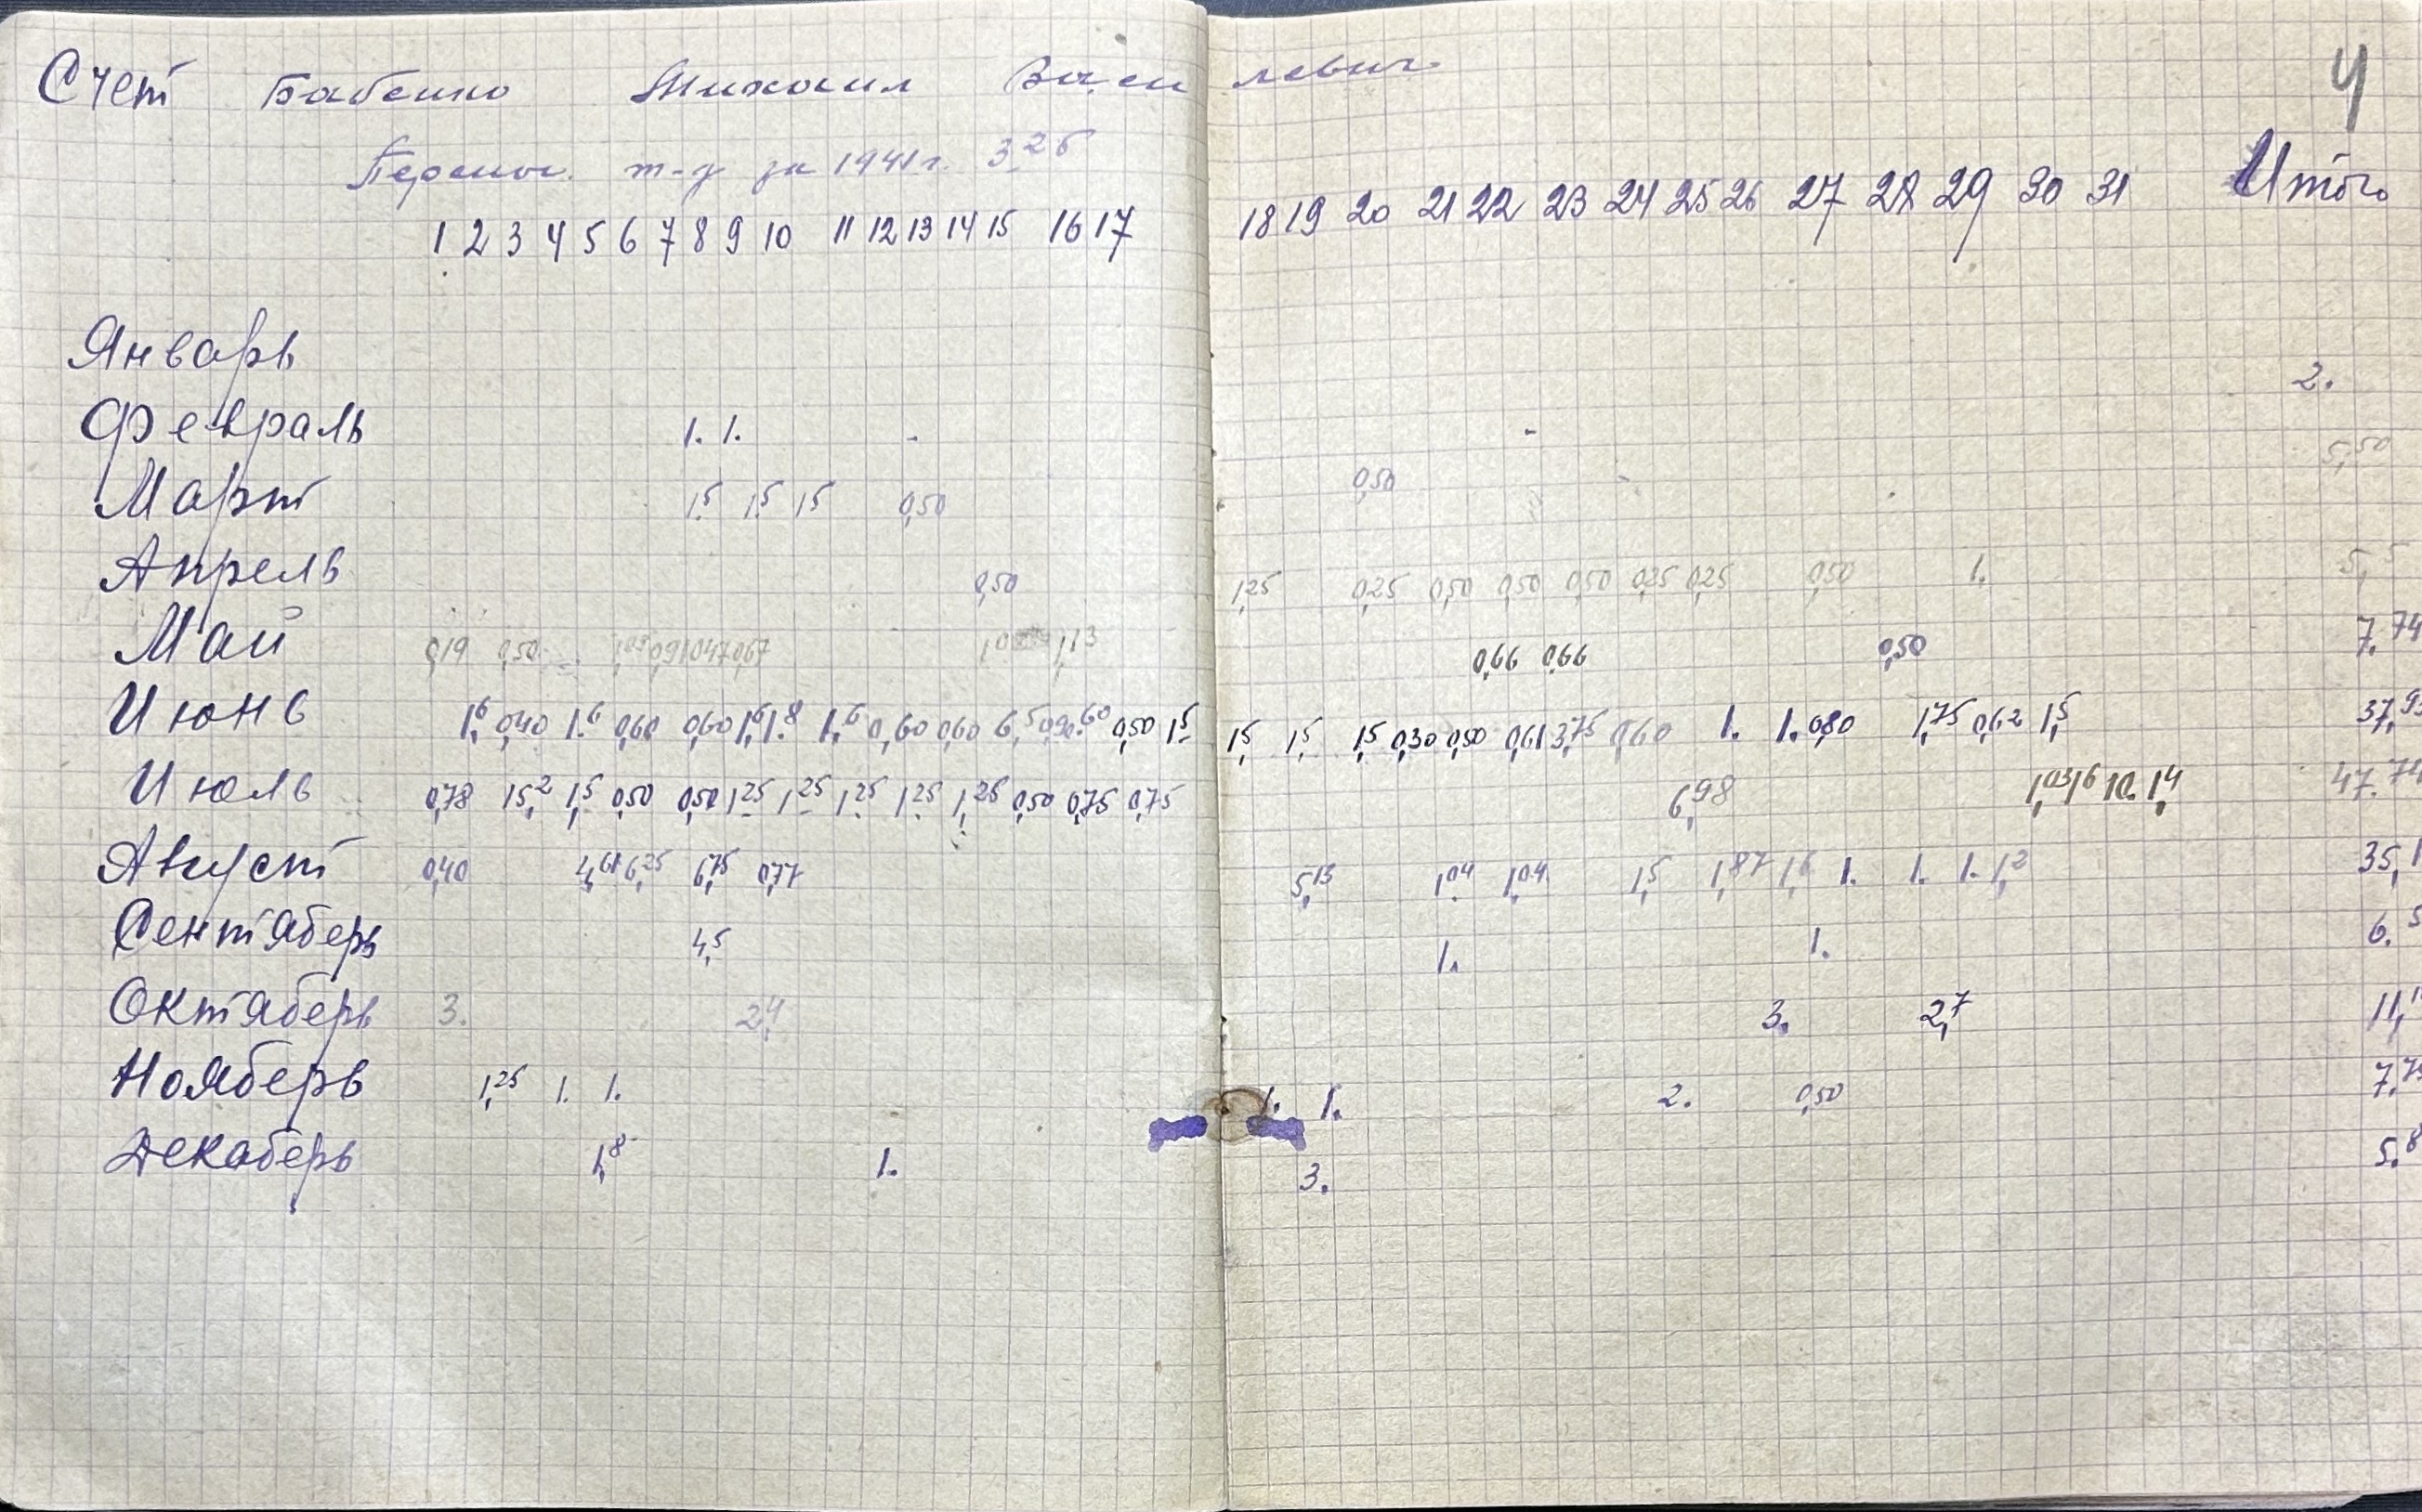 Счет Бабенко Михаил Василевич 4
Перенос. т-д за 1941 г. 3,25
1 2 3 4 5 6 7 8 9 10 11 12 13 14 15 16 17 18 19 20 21 22 23 24 25 26 27 28 29 30 31 Итого
Январь
Февраль 1. 1. 2.
Март 1,5 1,5 1,5 0,50 0,50 5,50
Апрель 0,50 1,25 0,25 0,50 0,50 0,50 0,25 0,25 0,50 1. 5,5
Май 0,19 0,50 0,47 0,67 1,13 0,66 0,66 0,50 7.74
Июнь 1,6 0,40 1.6 0,60 0,60 1,6 1.8 1,6 0,60 0,60 0,50 1,5 1,5 1,5 1,5 0,30 0,50 0,61 3,75 0,60 1. 1. 0,80 1,75 0,62 1,5
Июль 0,78 15,2 1,5 0,50 0,50 1,25 1,25 1,25 1,25 1,25 0,50 0,75 0,75 6,98 1,03 1,6 10. 1,4 47.74
Август 0,40 4,61 6,25 6,75 0,77 5,13 1,04 1,04 1,5 1,87 1,6 1. 1. 1. 1,2
Сентяберь 4,5 1. 1. 6.5
Октяберь 3. 2,4 3. 2,7
Нояберь 1,25 1. 1. 1. 1. 2. 0,50
Декаберь 1,8 1. 3. 5.8